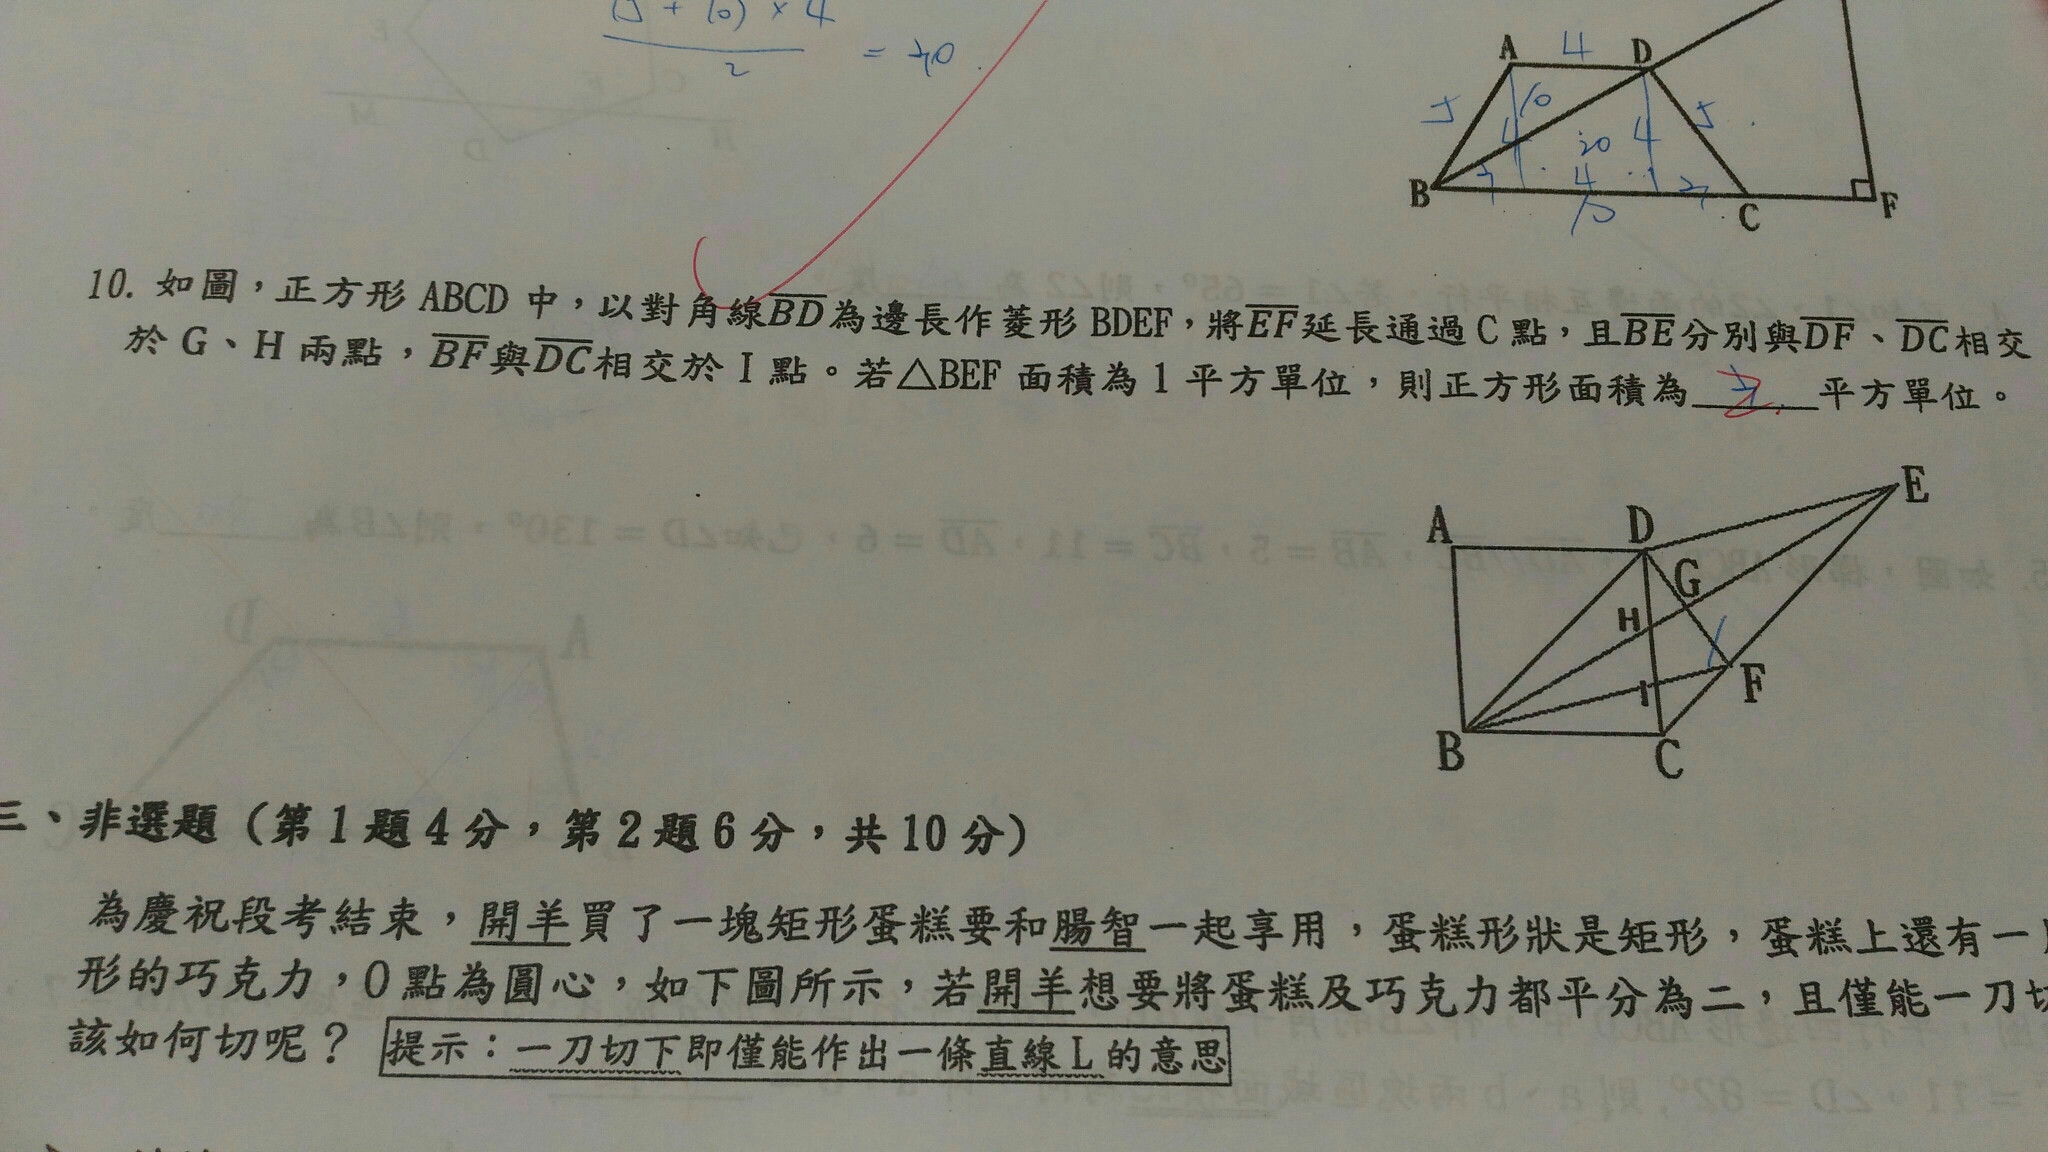 (5 + 10) × 4
2
= 30.
A 4 D
5 10 4 20 4 5
B 3 4 3 C F
10
10. 如圖，正方形 ABCD 中，以對角線BD為邊長作菱形 BDEF，將EF延長通過 C 點，且BE分別與DF、DC相交
於 G、H 兩點，BF與DC相交於 I 點。若△BEF 面積為 1 平方單位，則正方形面積為 2. 平方單位。
E
A D
G
H
F
I
B C
三、非選題（第 1 題 4 分，第 2 題 6 分，共 10 分）
為慶祝段考結束，開羊買了一塊矩形蛋糕要和腸智一起享用，蛋糕形狀是矩形，蛋糕上還有一
形的巧克力，O 點為圓心，如下圖所示，若開羊想要將蛋糕及巧克力都平分為二，且僅能一刀切
該如何切呢？ 提示：一刀切下即僅能作出一條直線 L 的意思